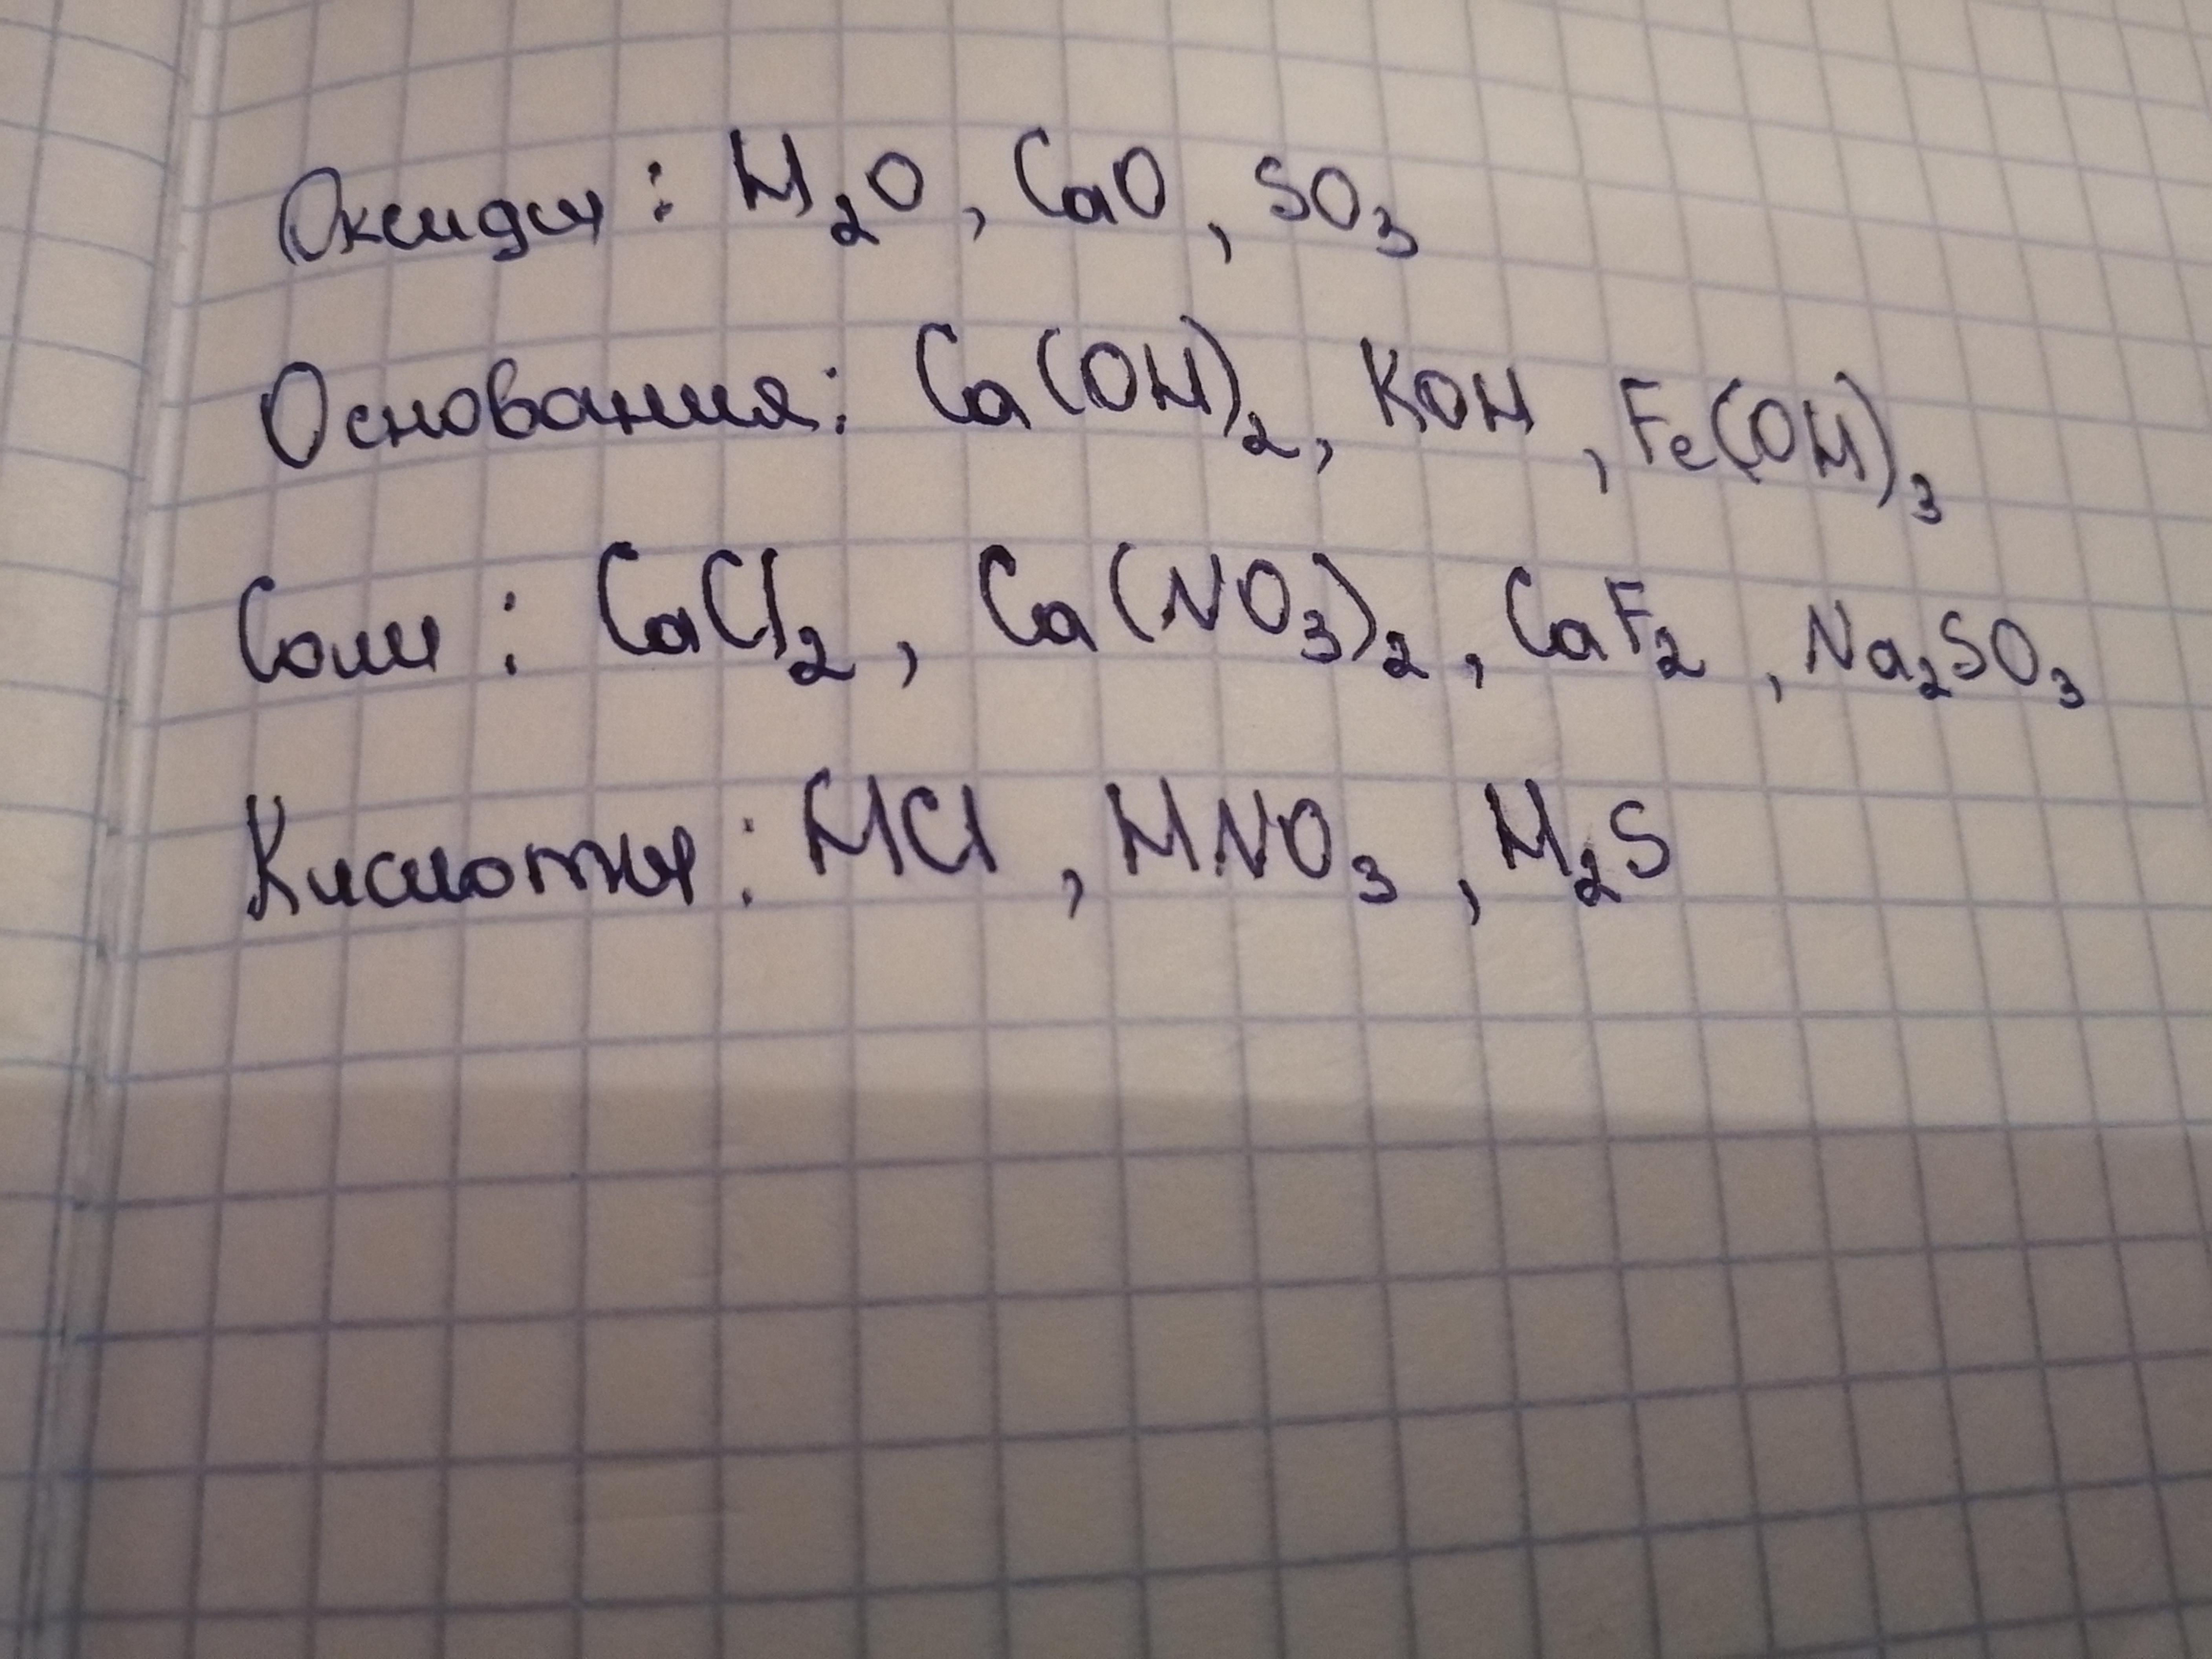 Оксиды: H₂O, CaO, SO₃
Основания: Ca(OH)₂, KOH, Fe(OH)₃
Соли: CaCl₂, Ca(NO₃)₂, CaF₂, Na₂SO₃
Кислоты: HCl, HNO₃, H₂S